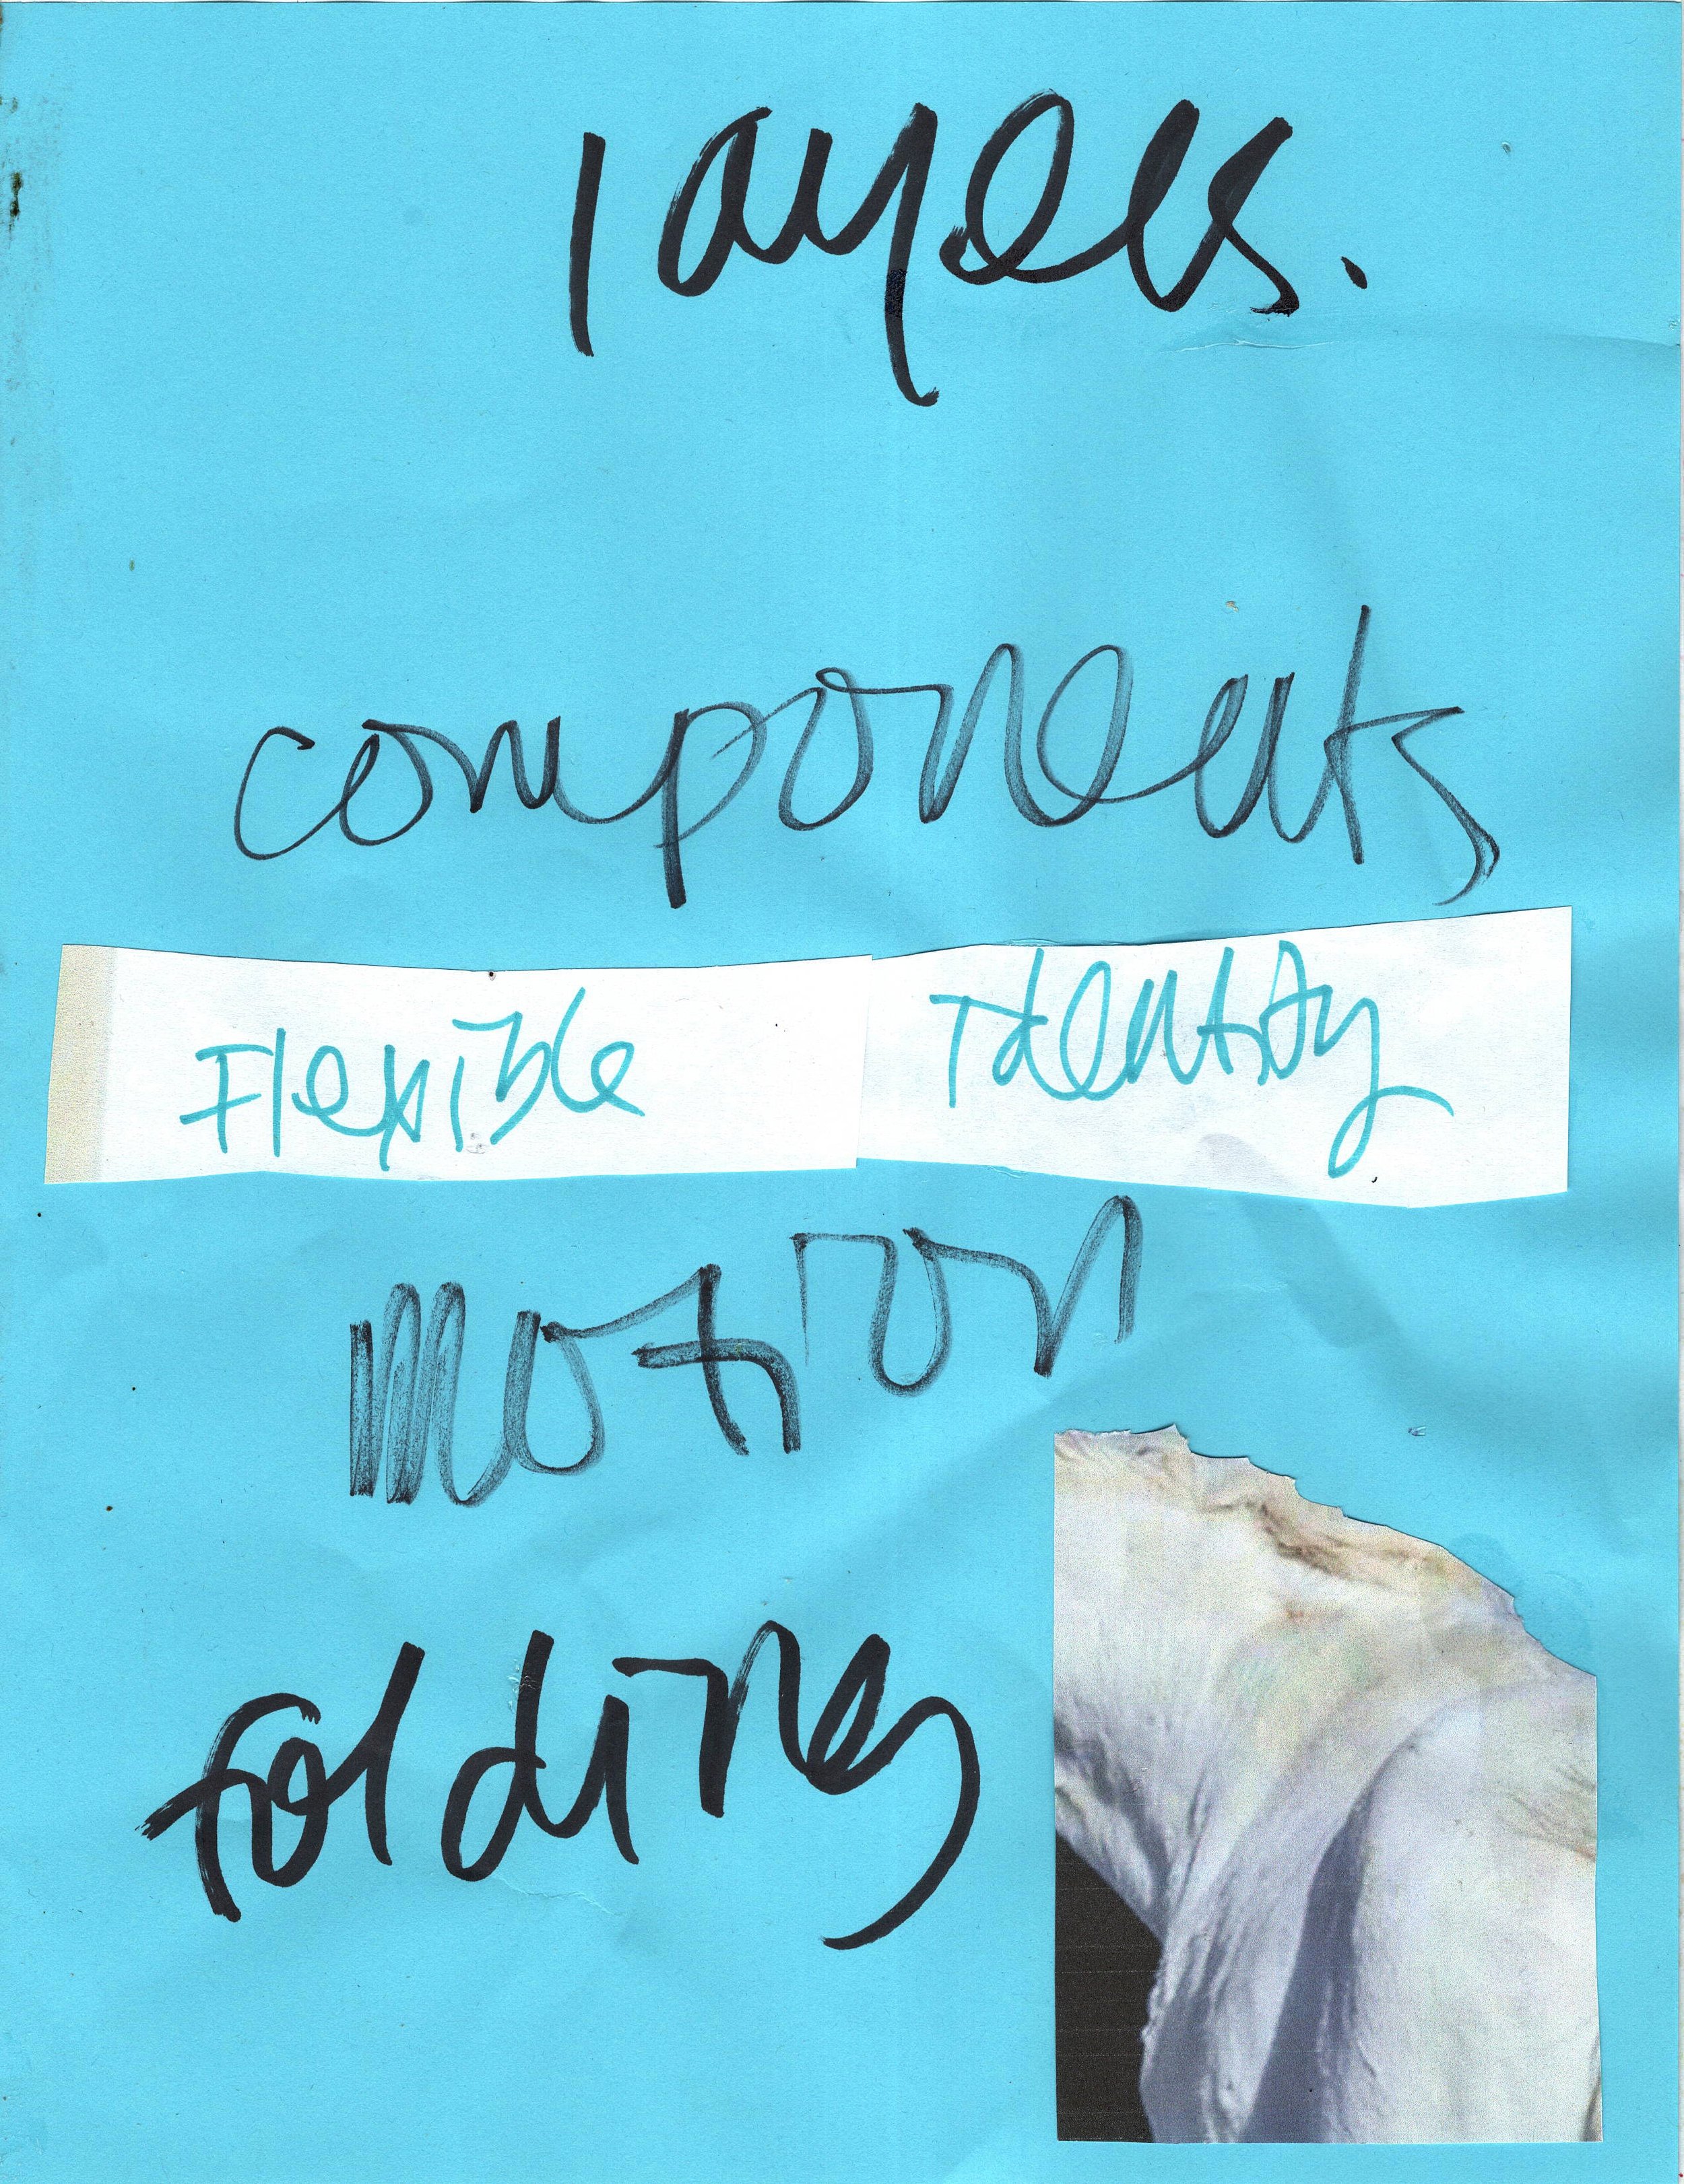 layers.
components
Flexible Identity
motion
folding